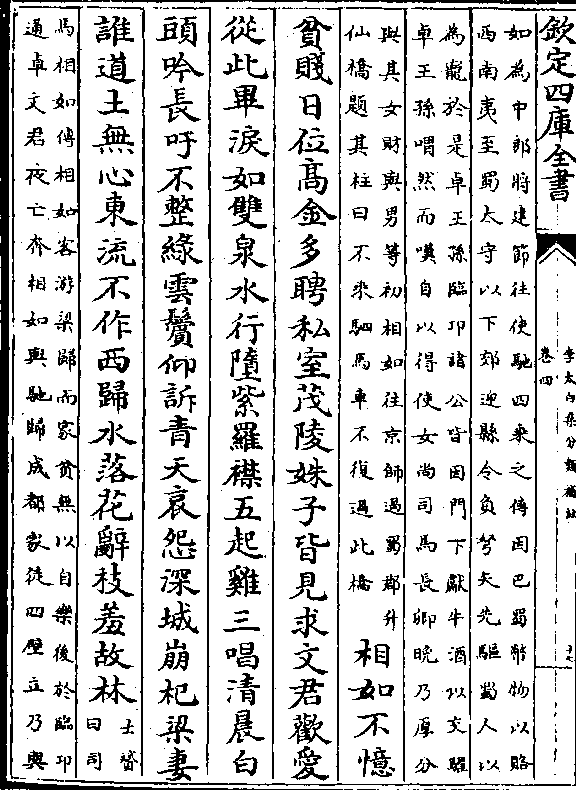 欽定四庫全書
李太白集分類補註
卷四
十七
如為中郎將建節往使馳四乗之傳因巴蜀幣物以賂
西南夷至蜀太守以下郊迎縣令負弩矢先驅蜀人以
為寵於是卓王孫臨卭諸公皆因門下獻牛酒以交驩
卓王孫喟然而嘆自以得使女尚司馬長卿晚乃厚分
與其女財與男等初相如往京師過蜀郡升
仙橋題其柱曰不乗駟馬車不復過此橋
相如不憶
貧賤日位髙金多聘私室茂陵姝子皆見求文君歡愛
從此畢淚如雙泉水行墮紫羅襟五起雞三唱清晨白
頭吟長吁不整綠雲鬢仰訴青天哀怨深城崩杞梁妻
誰道土無心東流不作西歸水落花辭枝羞故林
士贇
曰司
馬相如傳相如客游梁歸而家貧無以自樂後於臨卭
通卓文君夜亡奔相如與馳歸成都家徒四壁立乃與